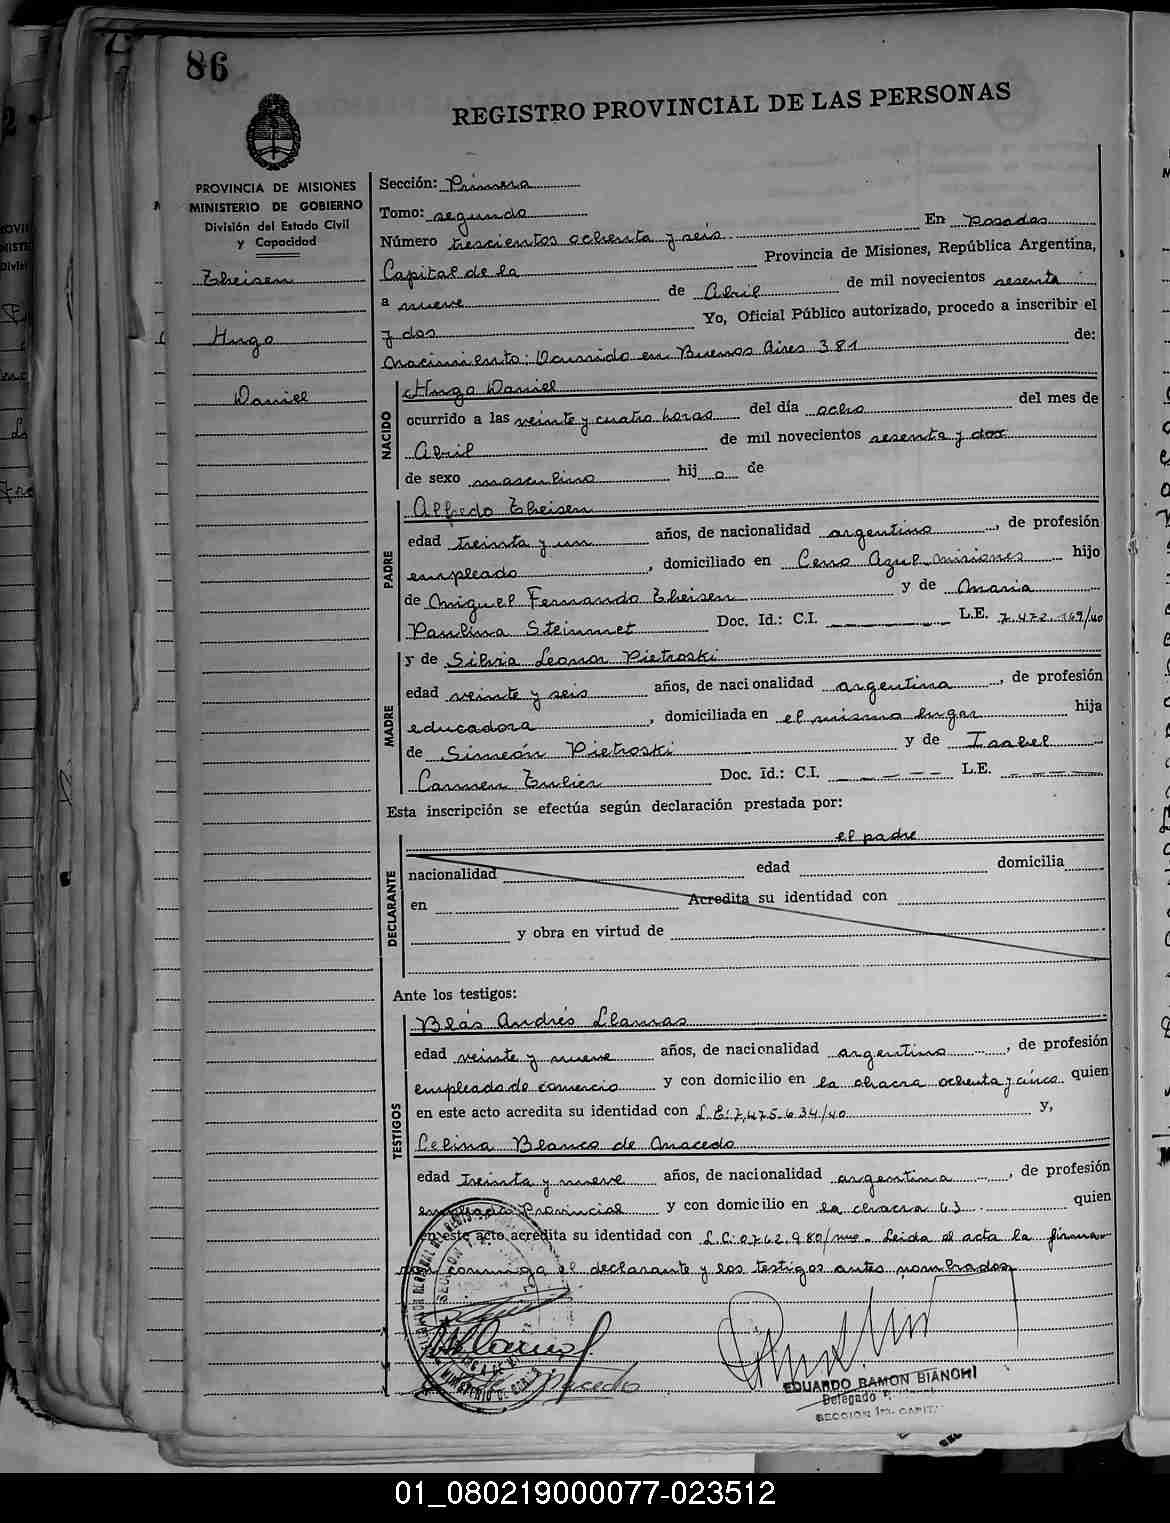 86
REGISTRO PROVINCIAL DE LAS PERSONAS
PROVINCIA DE MISIONES
MINISTERIO DE GOBIERNO
División del Estado Civil
y Capacidad
Theisen
Hugo
Daniel
Sección: Primera
Tomo: segundo
Número trescientos ochenta y seis En Posadas
Capital de la Provincia de Misiones, República Argentina,
a nueve de Abril de mil novecientos sesenta
y dos Yo, Oficial Público autorizado, procedo a inscribir el
Nacimiento: Ocurrido en Buenos Aires 381 de:
NACIDO
Hugo Daniel
ocurrido a las veinte y cuatro horas del día ocho del mes de
Abril de mil novecientos sesenta y dos
de sexo masculino hij o de
PADRE
Alfredo Theisen
edad treinta y un años, de nacionalidad argentino, de profesión
empleado, domiciliado en Cerro Azul Misiones hijo
de Miguel Fernando Theisen y de Maria
Paulina Steinmet Doc. Id.: C.I. L.E. 7.472.169/40
MADRE
y de Silvia Leonor Pietroski
edad veinte y seis años, de nacionalidad argentina, de profesión
educadora, domiciliada en el mismo lugar hija
de Simeón Pietroski y de Isabel
Carmen Doc. Id.: C.I. L.E.
Esta inscripción se efectúa según declaración prestada por:
DECLARANTE
el padre
nacionalidad edad domicilia
en Acredita su identidad con
y obra en virtud de
Ante los testigos:
TESTIGOS
Blás Andrés Llamas
edad veinte y nueve años, de nacionalidad argentino, de profesión
empleado de comercio y con domicilio en la chacra ochenta y cinco quien
en este acto acredita su identidad con L.E: 7,475.634/40 y,
Celina Blanco de Macedo
edad treinta y nueve años, de nacionalidad argentina, de profesión
empleada Provincial y con domicilio en la chacra 43 quien
en este acto acredita su identidad con L.C. 0762.980/ Leida el acta la firma
conmigo el declarante y los testigos antes nombrados
Macedo
EDUARDO RAMON BIANCHI
Delegado
SECCION 1ra. CAPIT
01_080219000077-023512